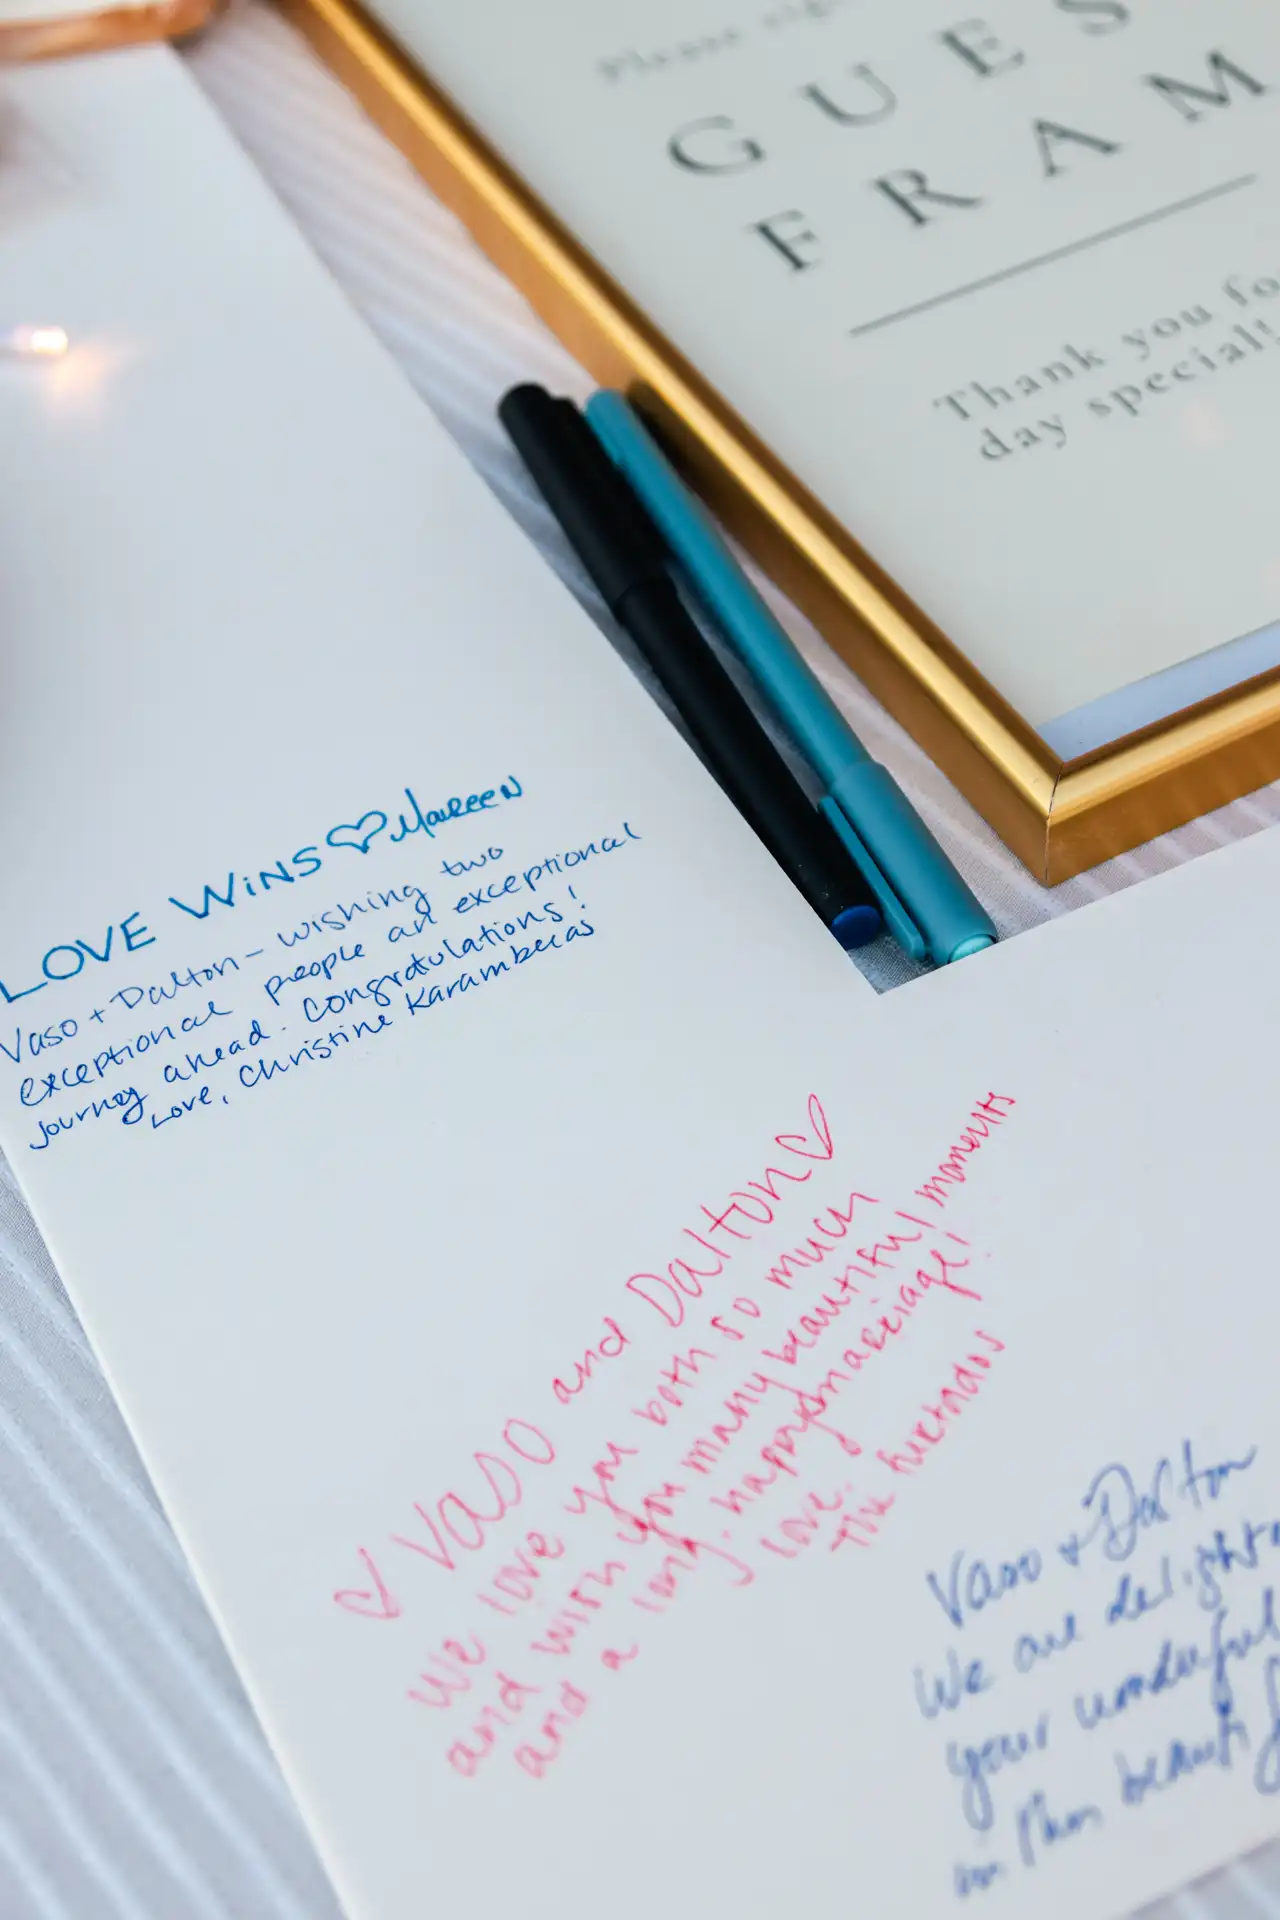 Please sign
GUES
FRAM
Thank you fo
day special!
LOVE WiNS ♡ Maureen
Vaso + Dalton - wishing two
exceptional people an exceptional
journey ahead. Congratulations!
Love, Christine Karambelas
♡ Vaso and Dalton ♡
We love you both so much
and wish you many beautiful moments
and a long, happy marriage!
love,
The Hurtados
Vaso + Dalton
We are delight
your wonderful
in this beautif